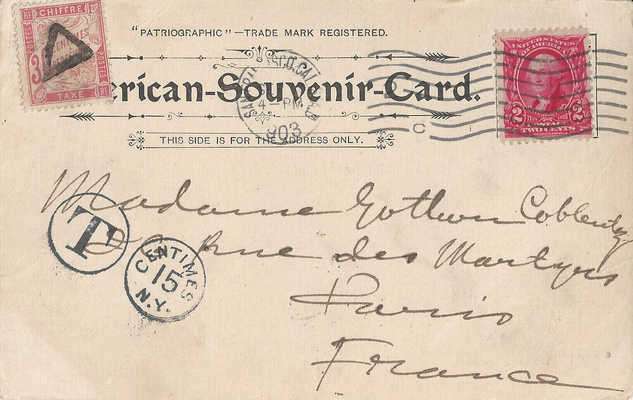 "PATRIOGRAPHIC"—TRADE MARK REGISTERED.
CHIFFRE
POSTES
CENTIMES
TAXE
erican-Souvenir-Card.
CAL.
4-PM
1903
UNITED STATES
OF AMERICA
2 2
POSTAGE
TWO CENTS
C
THIS SIDE IS FOR THE ADDRESS ONLY.
Madame
Rue des Martyrs
Paris
France
T
CENTIMES
15
N.Y.